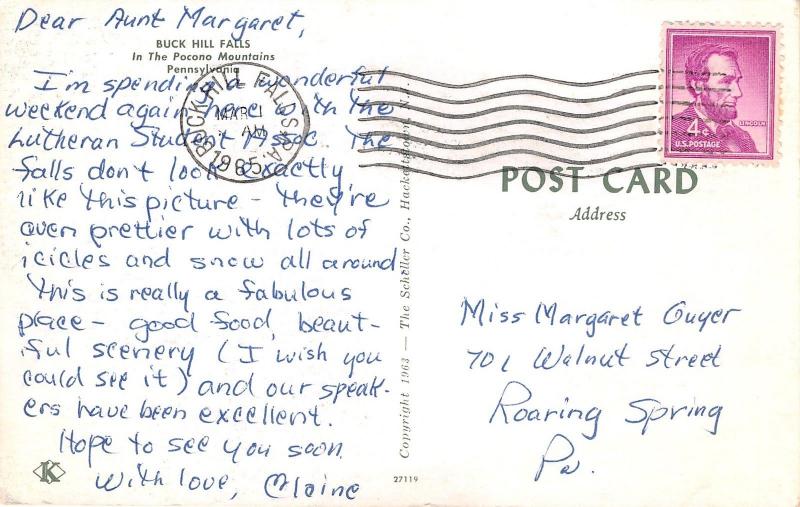 Dear Aunt Margaret,
BUCK HILL FALLS
In The Pocono Mountains
Pennsylvania
I'm spending a wonderful
weekend again here with the
Lutheran Student Assoc. The
falls don't look exactly
like this picture - they're
even prettier with lots of
icicles and snow all around
This is really a fabulous
place - good food, beaut-
iful scenery (I wish you
could see it) and our speak-
ers have been excellent.
Hope to see you soon.
With love, Elaine
K
BUCK HILL FALLS PA.
MAR 1
AM
1965
4¢
LINCOLN
U.S. POSTAGE
POST CARD
Address
Copyright 1963 — The Scheller Co., Hackettstown, N.J.
27119
Miss Margaret Guyer
701 Walnut Street
Roaring Spring
Pa.